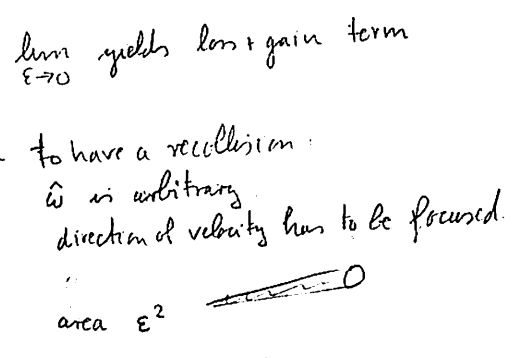 lim yields loss + gain term
ε→0
- to have a recollision :
ω̂ is arbitrary
direction of velocity has to be focused.
area ε²